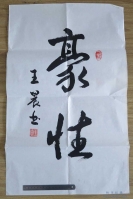 豪性
王晨书